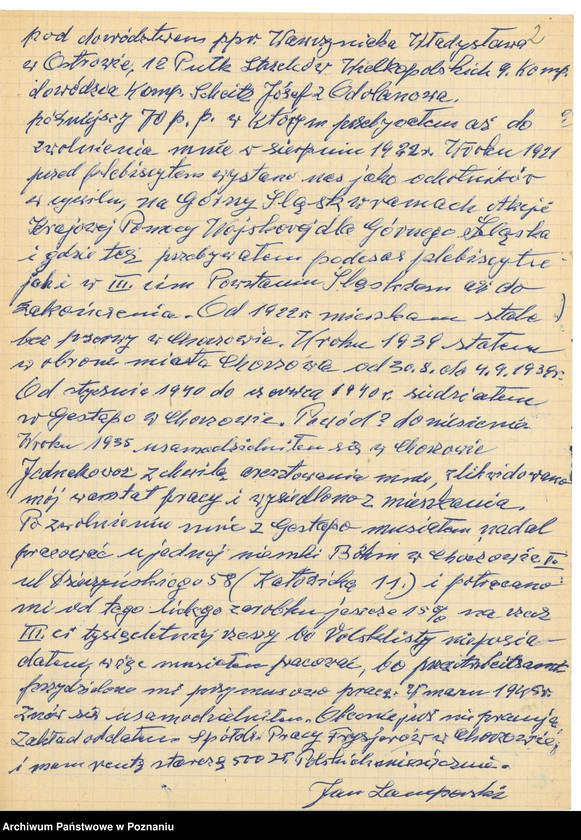 2
pod dowództwem ppr. Wawrzyniaka Władysława
w Ostrowie, 12 Pułk Strzelców Wielkopolskich 9. Komp.
dowódzca Komp. Scheitz Józef z Odolanowa.
późniejszy 70 p.p. w którym przebywałem aż do
zwolnienia mnie w sierpniu 1922 r. W roku 1921
przed plebiscytem wysłano nas jako ochotników
w cywilu, na Górny Śląsk w ramach Akcji
Krajowej Pomocy Wojskowej dla Górnego Śląska
i gdzie też przebywałem podczas plebiscytu
jak i w III. cim Powstaniu Śląskiem aż do
zakończenia. Od 1922 r. mieszkam stale
bez przerwy w Chorzowie. W roku 1939 stałem
w obronie miasta Chorzowa od 30.8. do 4.9.1939 r.
Od stycznia 1940 do czerwca 1940 r. siedziałem
w Gestapo w Chorzowie. Powód? doniesienia
W roku 1935 usamodzielniłem się w Chorzowie
Jednakowoż z chwilą aresztowania mnie, zlikwidowano
mój warstat pracy i wysiedlono z mieszkania.
Po zwolnieniu mnie z Gestapo musiałem nadal
pracować u jednej niemki Böhm w Chorzowie
ul Dzierżyńskiego 58 (Katowicka 11.) i potrącano
mi od tego lichego zarobku jeszcze 15% na rzecz
III. ci tysiącletniej rzeszy bo Volkslisty nieposia-
dałem, więc musiałem pracować, bo przez Arbeitsamt
przydzielono mi przymusowo pracę. W marcu 1945 r.
znów się usamodzielniłem. Obecnie już nie pracuję
Zakład oddałem Spółdz. Pracy Fryzjerów w Chorzowie,
i mam rentę starczą 500 zł. Polskich miesięcznie.
Jan
Archiwum Państwowe w Poznaniu